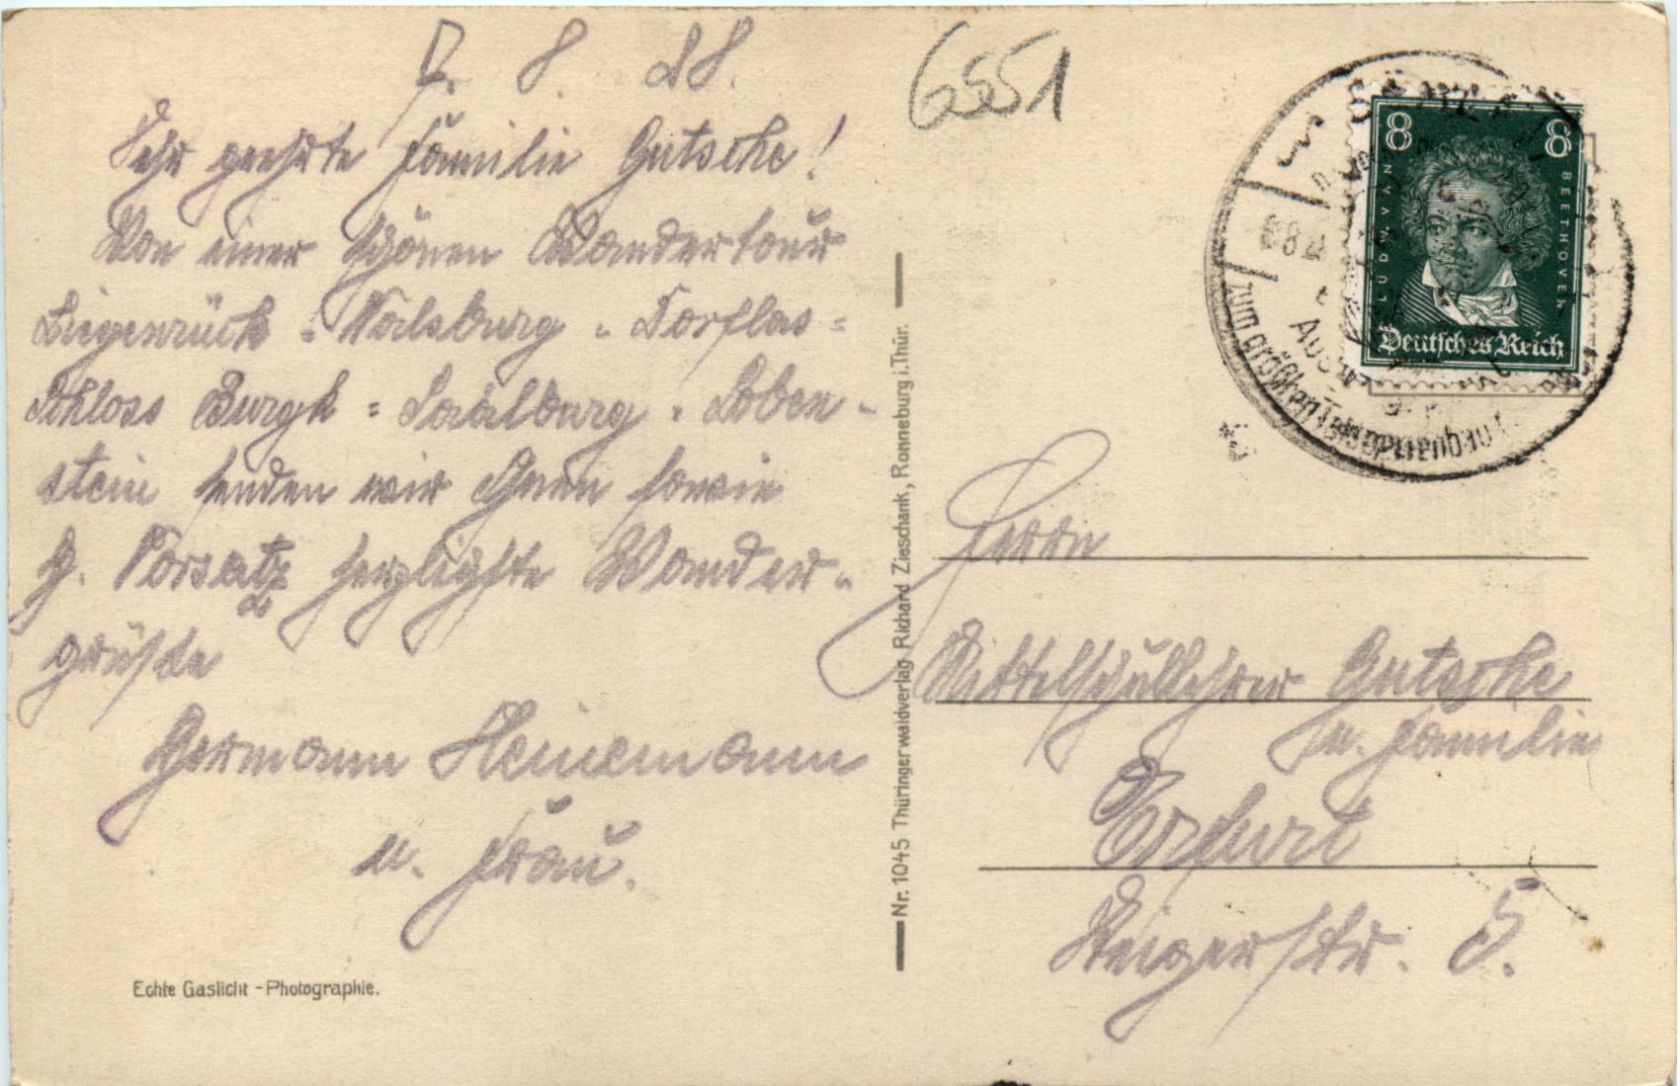 7. 8. 28.
6551
Sehr geehrte Familie Gutsche!
Von einer schönen Wandertour
Ziegenrück - Walsburg - Dorflas =
Schloss Burgk = Saalburg - Loben-
stein senden wir Ihnen sowie
H. Vorsatz herzlichste Wander-
grüße
Hermann Heinemann
u. Frau.
Echte Gaslicht - Photographie.
Nr. 1045 Thüringerwaldverlag Richard Zieschank, Ronneburg i. Thür.
8 8
LUDWIG VAN BEETHOVEN
Deutsches Reich
zum größten
Herrn
Mittelschullehrer Gutsche
u. Familie
Erfurt
Steigerstr. 5.